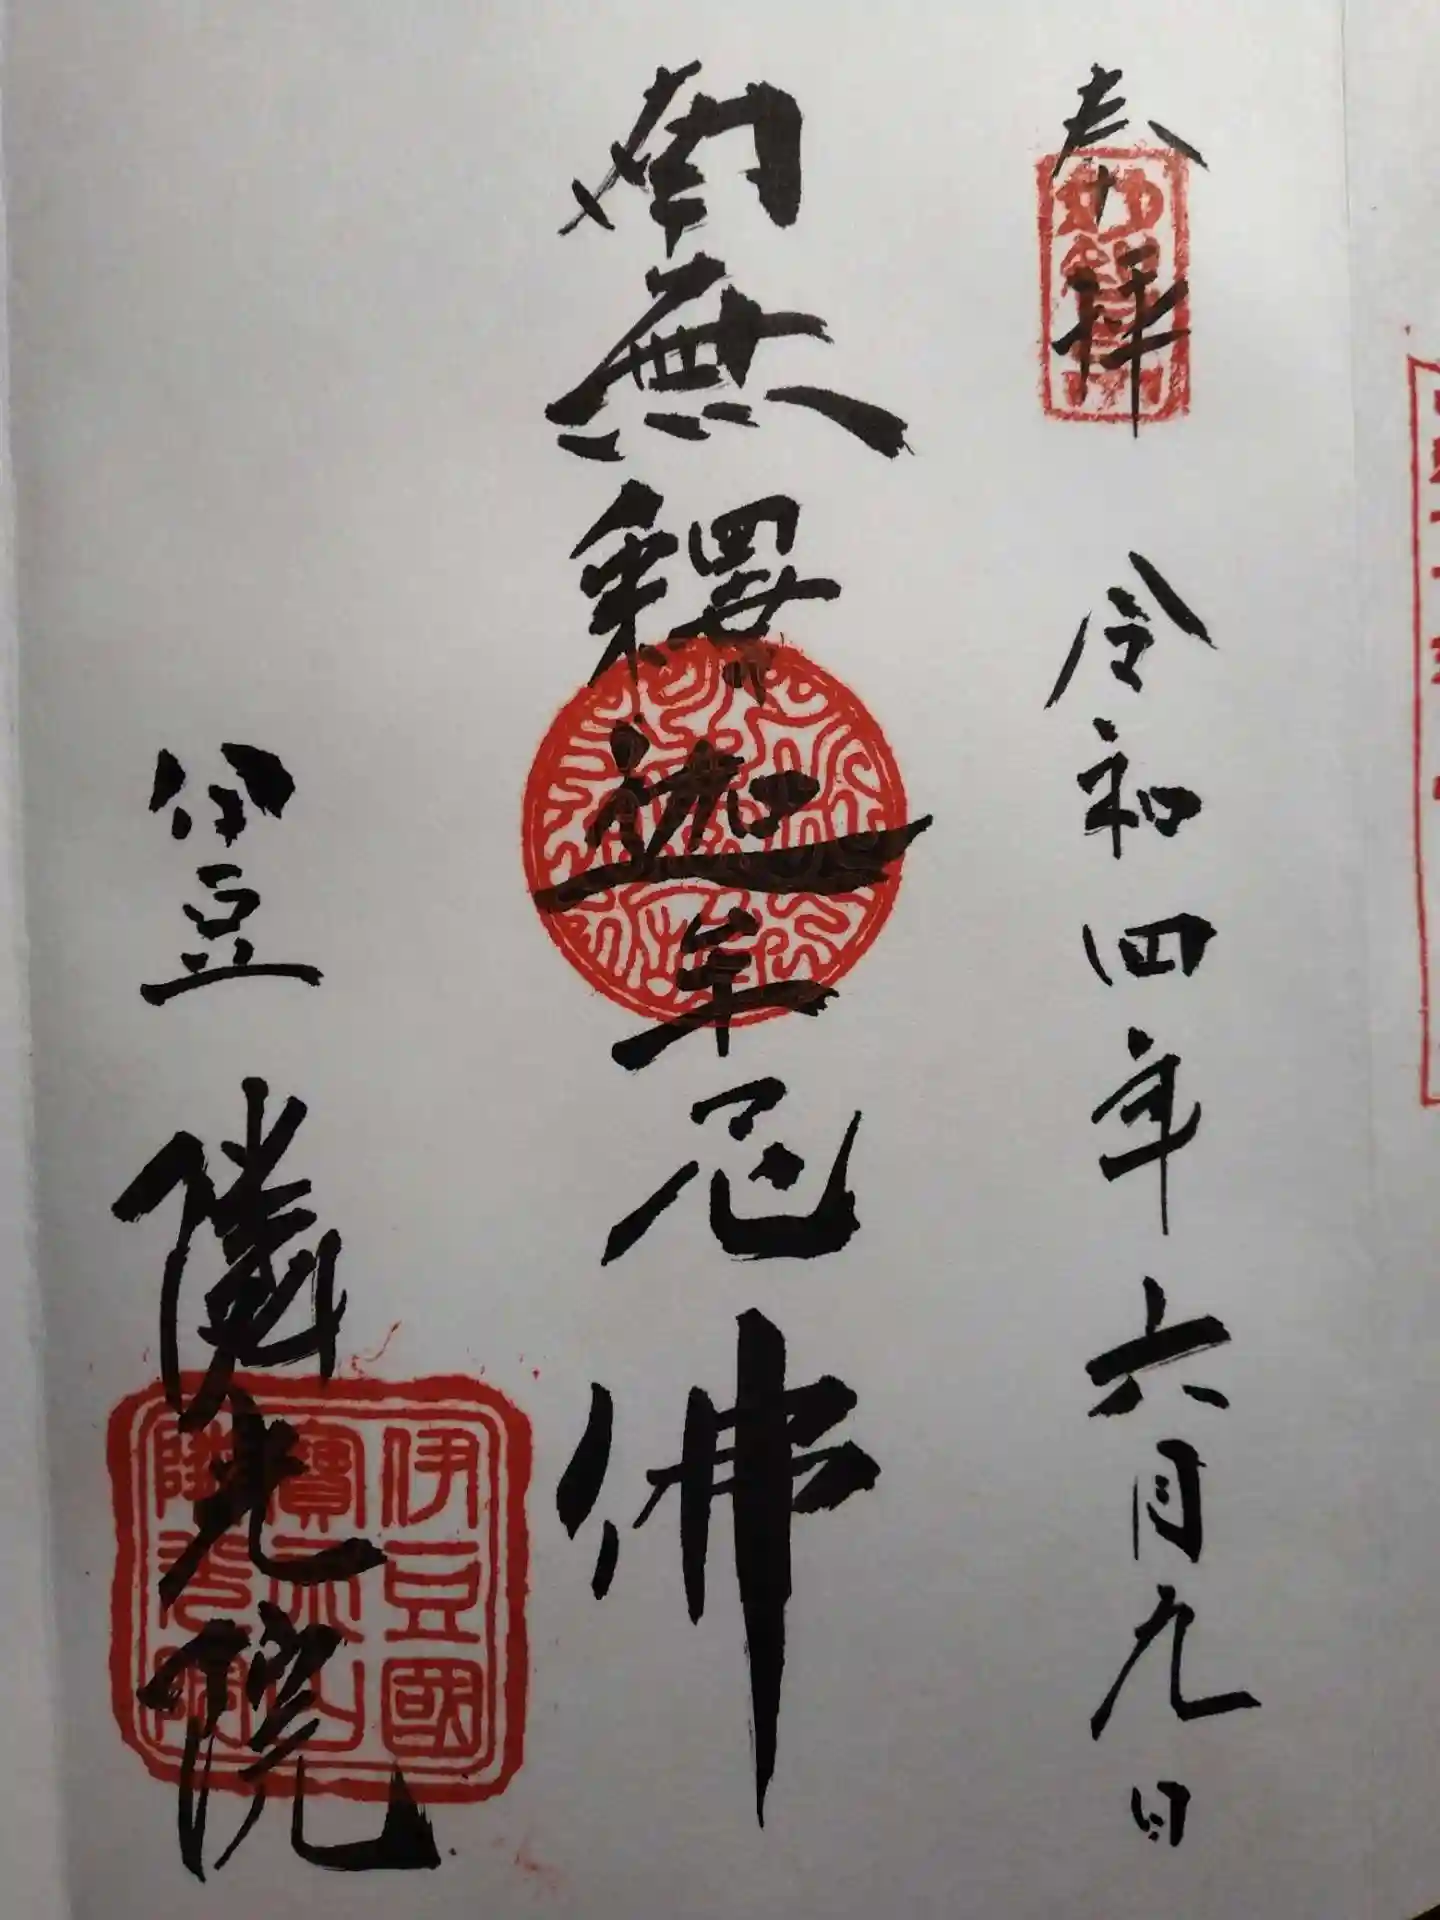 奉拝
令和四年六月九日
南無釋迦牟尼佛
伊豆
隣光院
伊豆國
寶
隣光院